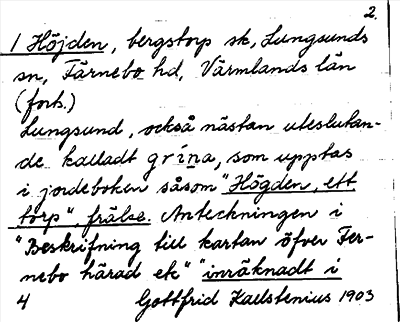 2.
1 Höjden, bergstorp sk, Lungsunds
sn, Färnebo hd, Värmlands län
(forts.)
Lungsund, också nästan uteslutan-
de kalladt grina, som upptas
i jordeboken såsom "Högden, ett
torp", frälse. Anteckningen i
"Beskrifning till kartan öfver Fer-
nebo härad etc" "inräknadt i
4 Gottfrid Kallstenius 1903